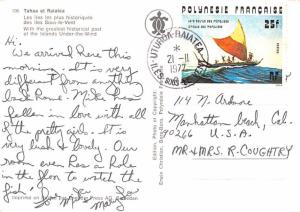 136 Tahaa et Raiatea
Les îles les plus historiques
des Iles Sous-le-Vent
With the greatest historical past
of the Islands Under-the-Wind
Hi.
We arrived here this
morning - it's very
different from anything
back home. Mike has
fallen in love with all
of the pretty girls. It is
very lush & lovely. Our
room even has a hole
in the floor to watch the
fish!
Edition, Photo et Copyright
Erwin Christian,
POLYNESIE FRANÇAISE
25F
UTUROA-RAIATEA
21-11
197
114 N. Ardmore
Manhattan Beach, Cal.
90266 U.S.A.
MR & MRS. R. COUGHTRY